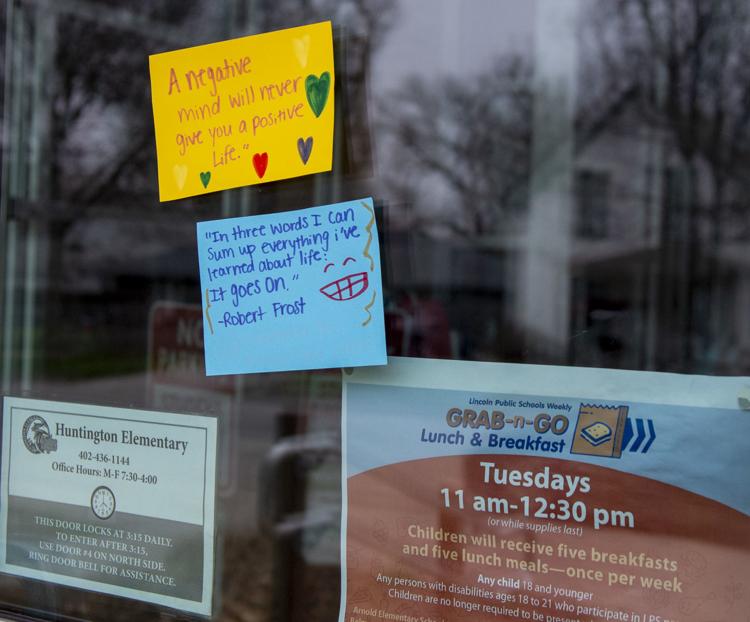 A negative
mind will never
give you a positive
Life."
"In three words I can
Sum up everything i've
learned about life:
It goes On."
-Robert Frost
Huntington Elementary
402-436-1144
Office Hours: M-F 7:30-4:00
THIS DOOR LOCKS AT 3:15 DAILY.
TO ENTER AFTER 3:15,
USE DOOR #4 ON NORTH SIDE.
RING DOOR BELL FOR ASSISTANCE.
Lincoln Public Schools Weekly
GRAB-n-GO
Lunch & Breakfast
Tuesdays
11 am-12:30 pm
(or while supplies last)
Children will receive five breakfasts
and five lunch meals—once per week
Any child 18 and younger
Any persons with disabilities ages 18 to 21 who participate in LPS
Children are no longer required to be
Arnold Elementary
NO